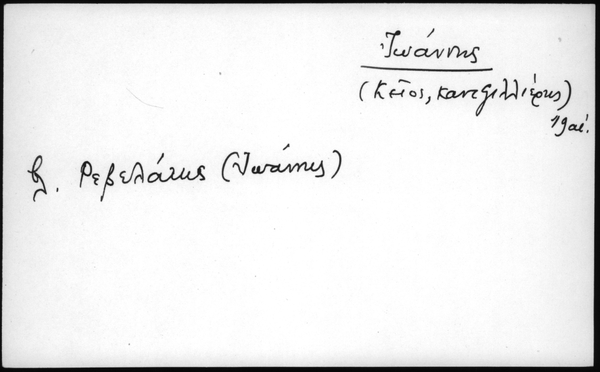 Ἰωάννης
(Κεῖος, καντηλλιέρης)
19 αἰ.
βλ. Ρεβελάκης (Ἰωάννης)